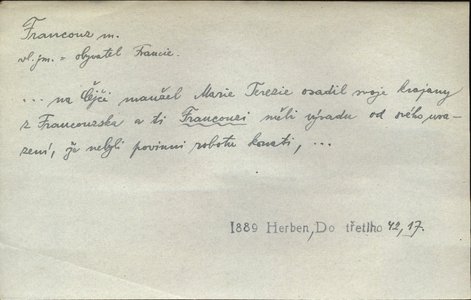 Francouz m.
vl. jm. = obyvatel Francie.
... na Čejči manžel Marie Terezie osadil svoje krajany
z Francouzska a ti Francouzi měli výsadu od svého osa-
zení, že nebyli povinni robotu konati, ...
1889 Herben, Do třetího 42, 17.